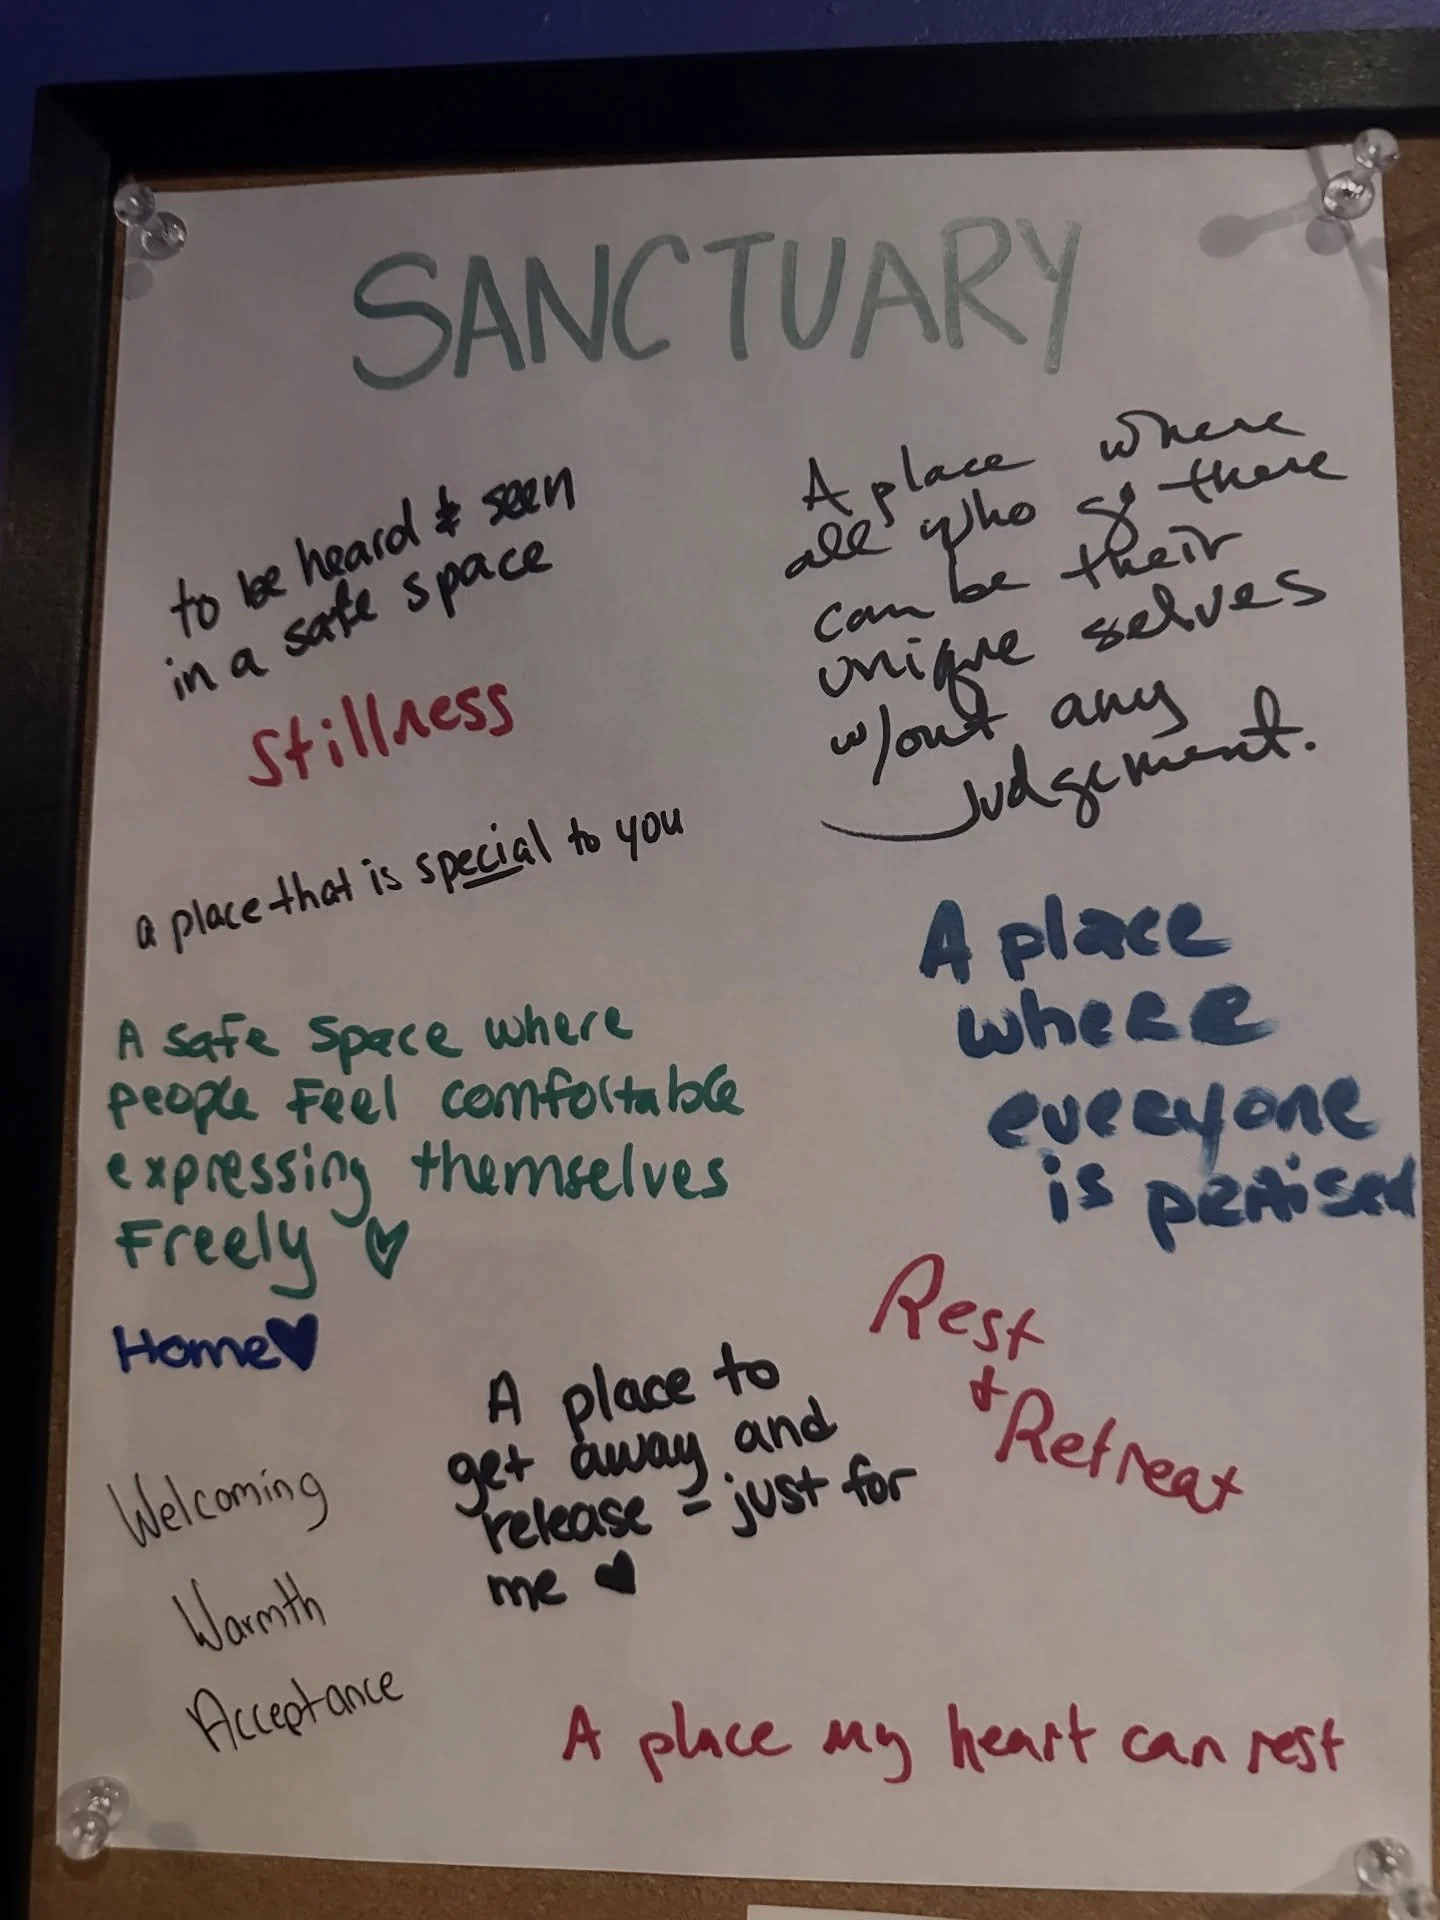 SANCTUARY
to be heard & seen
in a safe space
Stillness
a place that is special to you
A place where
all who go there
can be their
unique selves
w/out any
judgement.
A place
where
everyone
is
A safe space where
people feel comfortable
expressing themselves
Freely
Home
Rest
+ Retreat
A place to
get away and
release - just for
me
Welcoming
Warmth
Acceptance
A place my heart can rest